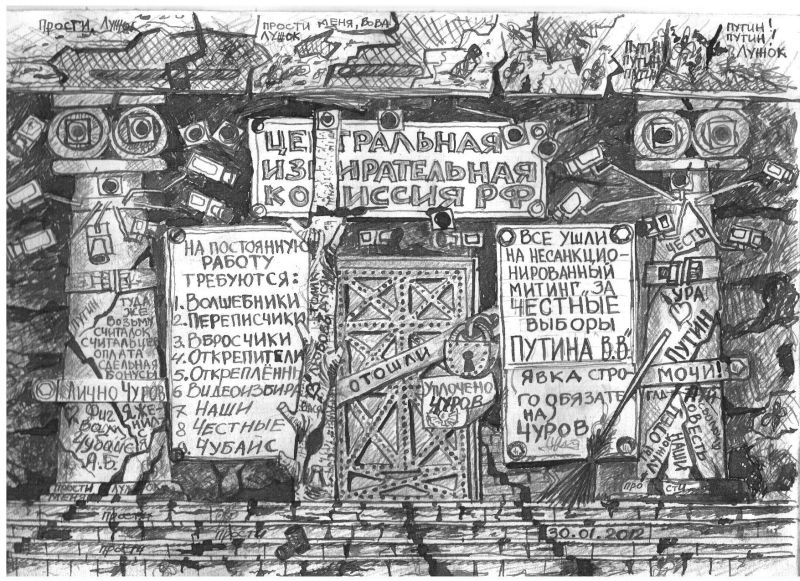 Прости, Лужок
ПРОСТИ МЕНЯ, ВОВА
ЛУЖОК
ПУТИН
ПУТИН
ПУТИН
ПУТИН!
ПУТИН!
ЛУЖОК
ЦЕНТРАЛЬНАЯ
ИЗБИРАТЕЛЬНАЯ
КОМИССИЯ РФ
НА ПОСТОЯННУЮ
РАБОТУ
ТРЕБУЮТСЯ:
1. ВОЛШЕБНИКИ
2. ПЕРЕПИСЧИКИ
3. ВБРОСЧИКИ
4. ОТКРЕПИТЕЛИ
5. ОТКРЕПЛЕНН
6 ВИДЕОИЗБИРА
7 НАШИ
8 ЧЕСТНЫЕ
9 ЧУБАЙС
ОТОШЛИ
УПЛОЧЕНО
ЧУРОВ
ВСЕ УШЛИ
НА НЕСАНКЦИО-
НИРОВАННЫЙ
МИТИНГ „ЗА
ЧЕСТНЫЕ
ВЫБОРЫ
ПУТИНА В.В."
ЯВКА СТРО-
ГО ОБЯЗАТЕ
НА
ЧУРОВ
ПУТИН
ТУДА
ЖЕ
ВОЗЬМУ
СЧИТАЛОК
СЧИТАЛЬЦЕВ
ОПЛАТА
СДЕЛЬНАЯ
БОНУСЫ
ЛИЧНО ЧУРОВ
ФИГ
ВАМ
ЧУБАЙС
А.Б
ПРОСТИ
МЕНЯ
ЛУЖОК
ЧЕСТЬ
УРА
ПУТИН
МОЧИ!
ОТЕЦ
НАШИ
СОВЕСТЬ
ЛУЖОК
ПРО
СТИ
Прости
Прости
Прости
30.01.2012